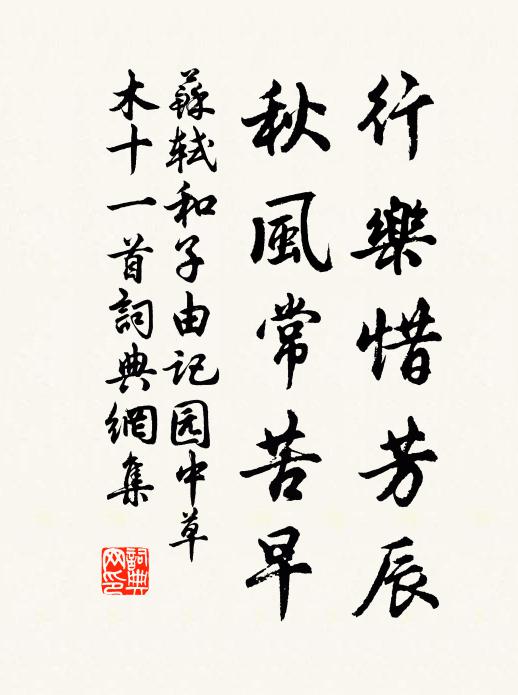 行樂惜芳辰
秋風常苦早
蘇軾和子由記园中草
木十一首詞典網集
詞典网印